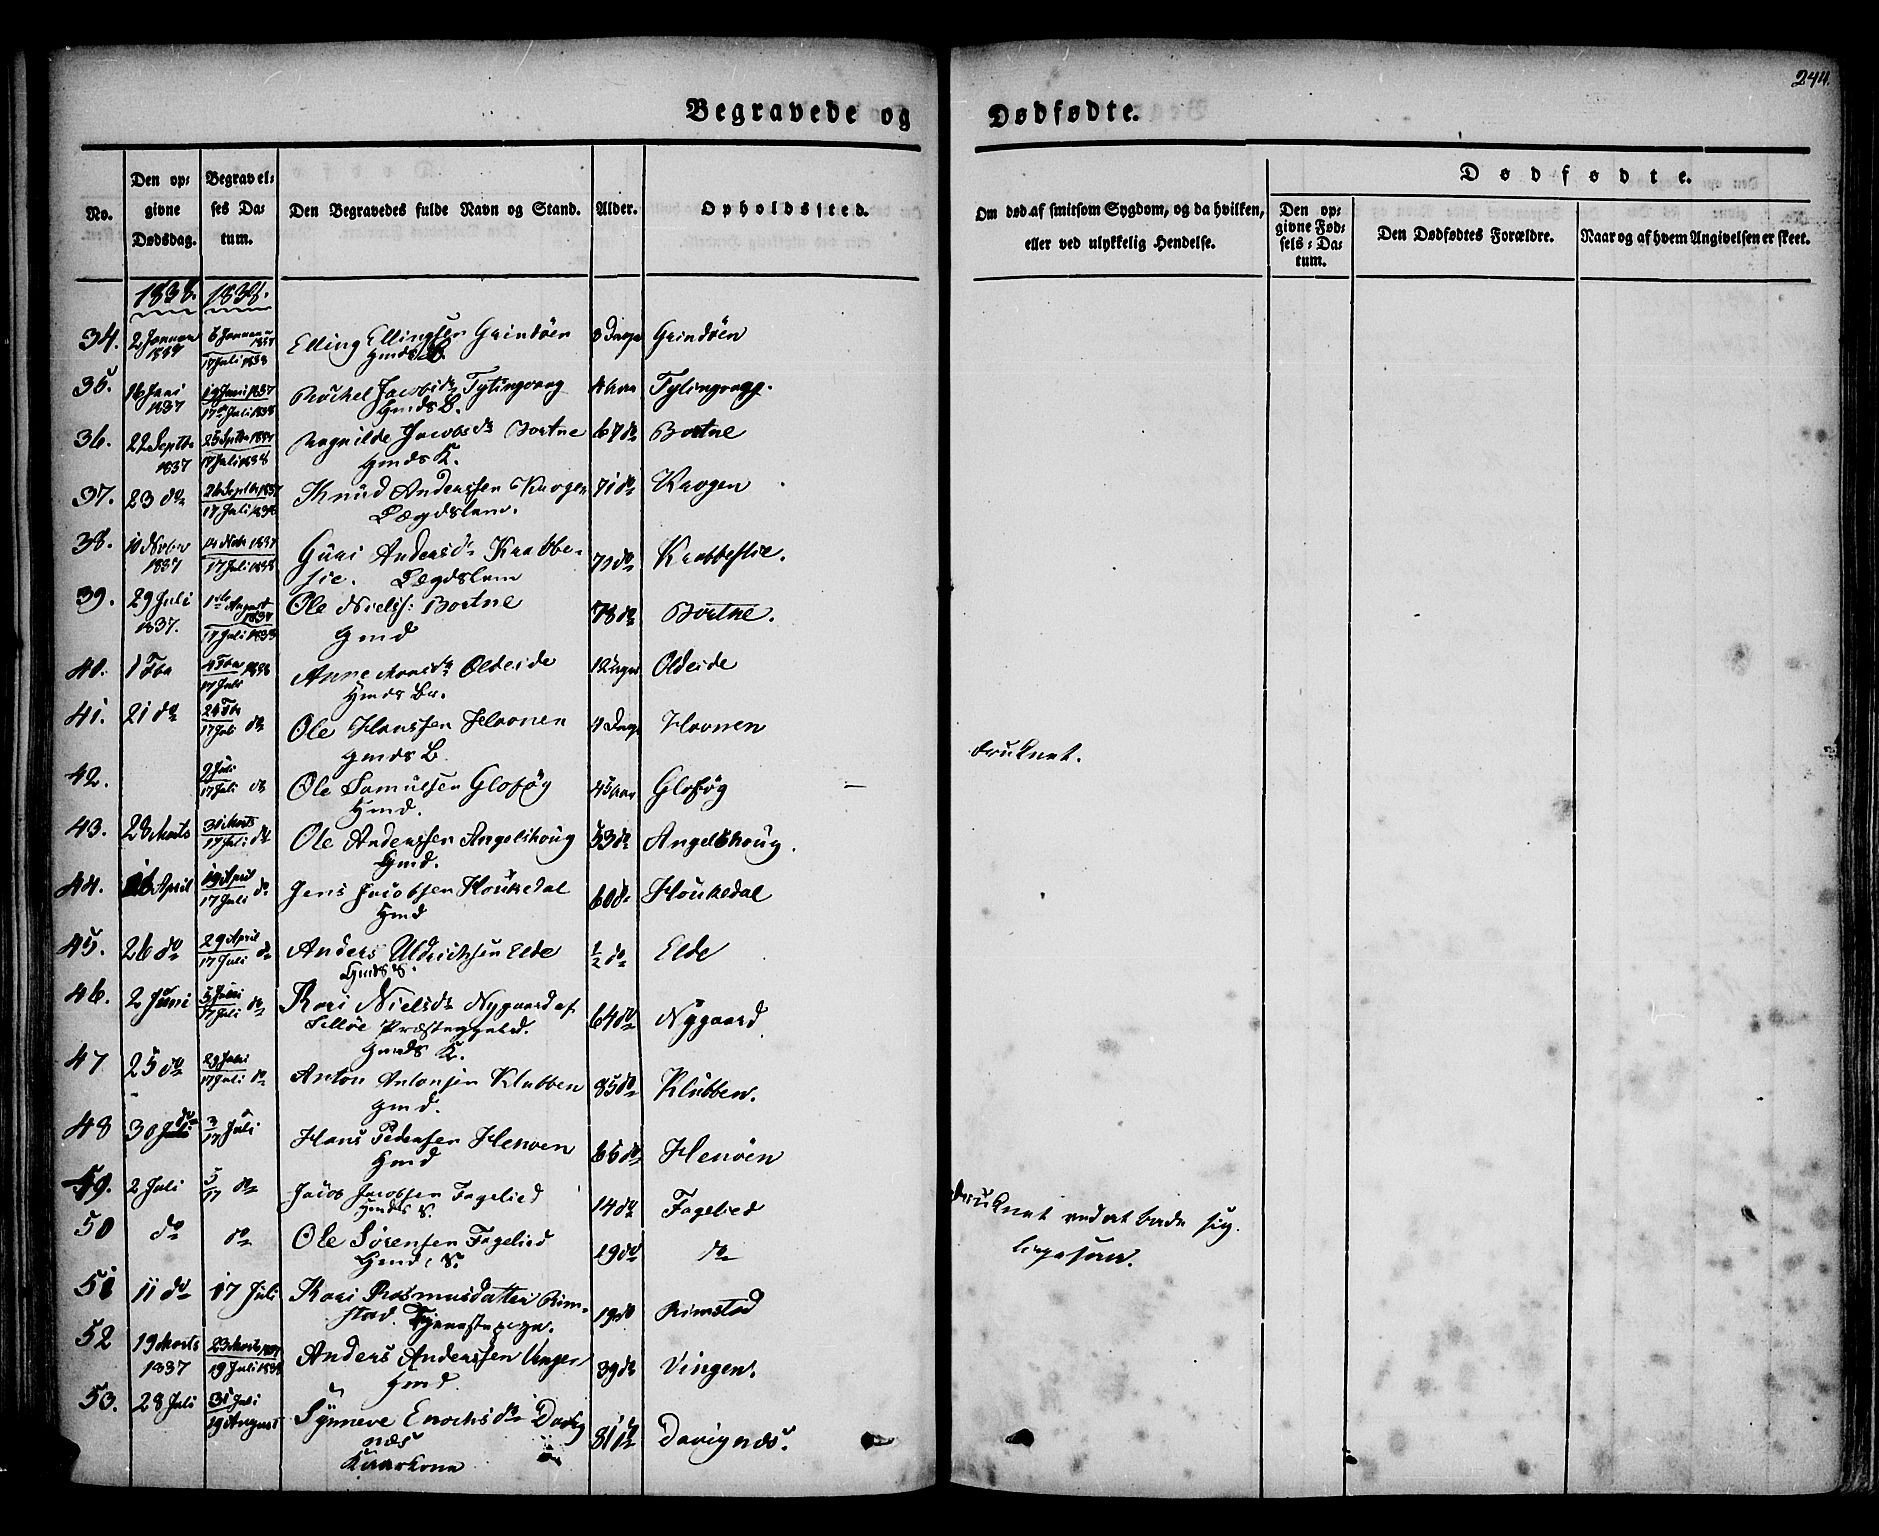 244.
Begravede og Dødfødte.
No.
Den op:
givne
Dødsdag.
Begravel:
ses Da:
tum.
Den Begravedes fulde Navn og Stand.
Alder.
Opholdssted.
Om død af smitsom Sygdom, og da hvilken,
eller ved ulykkelig Hendelse.
Dødfødte.
Den op:
givne Fød:
sels: Da:
tum.
Den Dødfødtes Forældre.
Naar og af hvem Angivelsen er skeet.
1838. 1838.
34. 2 Januar 1838 6 Januar 17 Juli 1838 Elling Ellingsen Grindøen 8 Dage Grindøen
Gmds B.
35. 16 Juni 1837 19 Juni 1837 17 Juli 1838 Rachel Jacobsd. Tytingvaag 4 Aar Tytingvaag.
Gmds B.
36. 22 Septbr 1837 25 Septbr 1837 17 Juli 1838 Ragnilde Jacobsd. Bortne 67 do Bortne
Gmds K.
37. 23 do 26 Septbr 1837 17 Juli 1838 Knud Anderssen Krogen 71 do Krogen
Lægdslem.
38. 10 Novbr 1837 14 Novbr 1837 17 Juli 1838 Guri Andersd. Krabbe-
stie. Lægdslem Krabbestie.
39. 29 Juli 1837. 1ste August 1837 17 Juli 1838 Ole Niels: Bortne 78 do Bortne.
Gmd
40. 1 Fbr 4 Fbr 1838 17 Juli Anne Monsd. Oldeide 12 Dage Oldeide
Gmds Br.
41. 21 do 24 Fbr 17 Juli do Ole Hanssen Havnen 4 Dage Havnen
Gmds B.
42. 2 Juli 17 Juli do Ole Samuelsen Gloføg 45 Aar Gloføg druknet.
Gmd.
43. 28 Marts 31 Marts 17 Juli do Ole Anderssen Angelshoug 53 do Angelshoug.
Gmd.
44. 16 April 19 April 17 Juli do Jens Jacobsen Houkedal 60 do Houkedal
Gmd
45. 26 do 29 April 17 Juli do Anders Uldrichsen Elde 1/2 do Elde
Gmds S.
46. 2 Juni 5 Juni 17 Juli do Kari Nielsd. Nygaard af 64 do Nygaard
Selløe Præstegjeld.
Gmds K.
47 25 do 29 Juni 17 Juli do Anton Antonsen Klubben 85 do Klubben.
Gmd.
48 30 do 3 17 Juli Hans Pedersen Henøen 66 do Henøen
Gmd
49. 2 Juli 5 17 do Jacob Jacobsen Fagelied 14 do Fagelied druknet ved at bade sig.
Gmds S.
50 do do Ole Sørensen Fagelied 19 do do ligesaa.
Gmd, S.
51 11 do 17 Juli Kari Rasmusdatter Rim- 19 do Rimstad
stad. Tjenestepige.
52 19 Marts 1837 23 Marts 1837 19 Juli 1838 Anders Anderssen Vingen 39 do Vingen.
Gmd.
53. 28 Juli 31 Juli 19 August Synneve Enochsd. Davig 81 1/2 Davignæs.
næs
Kaarkone